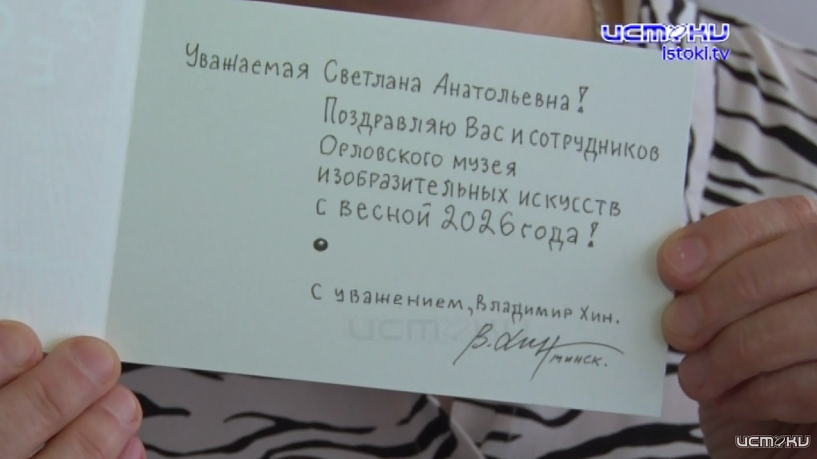 истоки
istoki.tv
Уважаемая Светлана Анатольевна!
Поздравляю Вас и сотрудников
Орловского музея
изобразительных искусств
с весной 2026 года!
С уважением, Владимир Хин.
В. Хин
минск.
истоки
истоки